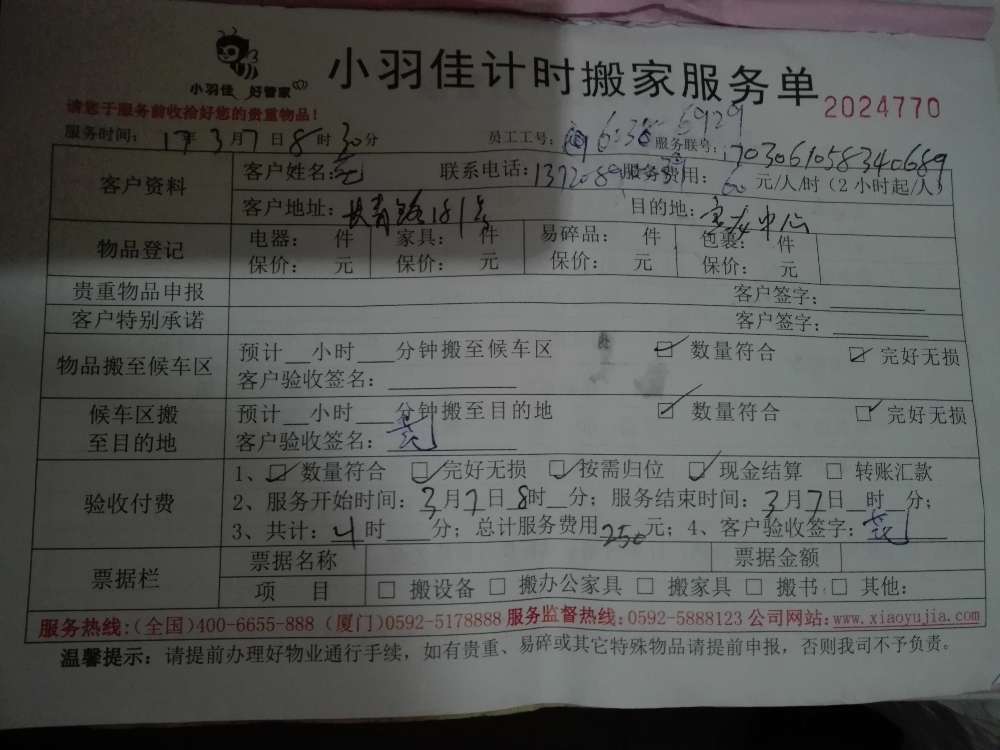 小羽佳 好管家
小羽佳计时搬家服务单
2024770
请您于服务前收拾好您的贵重物品！
服务时间： 17年 3月 7日 8时 30分 员工工号： 服务联号： 1703061058340689
客户资料 客户姓名： 联系电话： 服务费用： 60 元/人/时（2小时起/人）
客户地址： 长青路181号 目的地： 中心
物品登记 电器： 件 家具： 件 易碎品： 件 包裹： 件
保价： 元 保价： 元 保价： 元 保价： 元
贵重物品申报 客户签字：
客户特别承诺 客户签字：
物品搬至候车区 预计__小时___分钟搬至候车区 ☑ 数量符合 ☑ 完好无损
客户验收签名：
候车区搬至目的地 预计__小时___分钟搬至目的地 ☑ 数量符合 ☑ 完好无损
客户验收签名：
验收付费 1、☑ 数量符合 ☑ 完好无损 ☑ 按需归位 ☑ 现金结算 □ 转账汇款
2、服务开始时间：3月7日8时__分；服务结束时间：3月7日__时__分；
3、共计：4时___分；总计服务费用250元；4、客户验收签字：
票据栏 票据名称 票据金额
项 目 □ 搬设备 □ 搬办公家具 □ 搬家具 □ 搬书 □ 其他：
服务热线：(全国)400-6655-888 (厦门)0592-5178888 服务监督热线：0592-5888123 公司网站：www.xiaoyujia.com
温馨提示：请提前办理好物业通行手续，如有贵重、易碎或其它特殊物品请提前申报，否则我司不予负责。